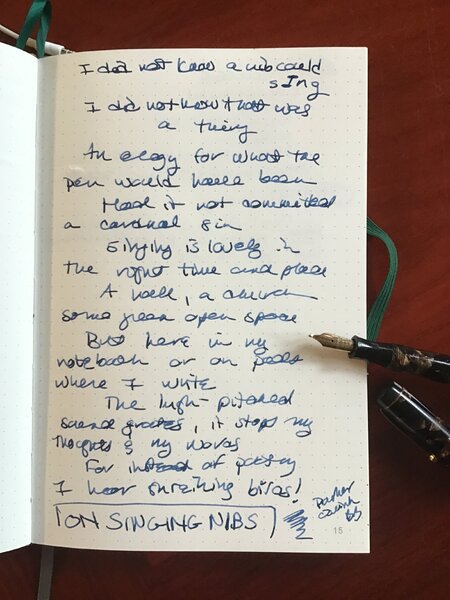 I did not know a nib could
sing
I did not know that was
a thing
An elegy for what the
pen would have been
Had it not committed
a cardinal sin
Singing is lovely in
the right time and place
A hall, a church
some green open space
But here in my
notebook or on pads
where I write
The high-pitched
sound grates, it stops my
thoughts & my words
For instead of poetry
I hear shrieking birds!
ON SINGING NIBS
Parker
Quink
15